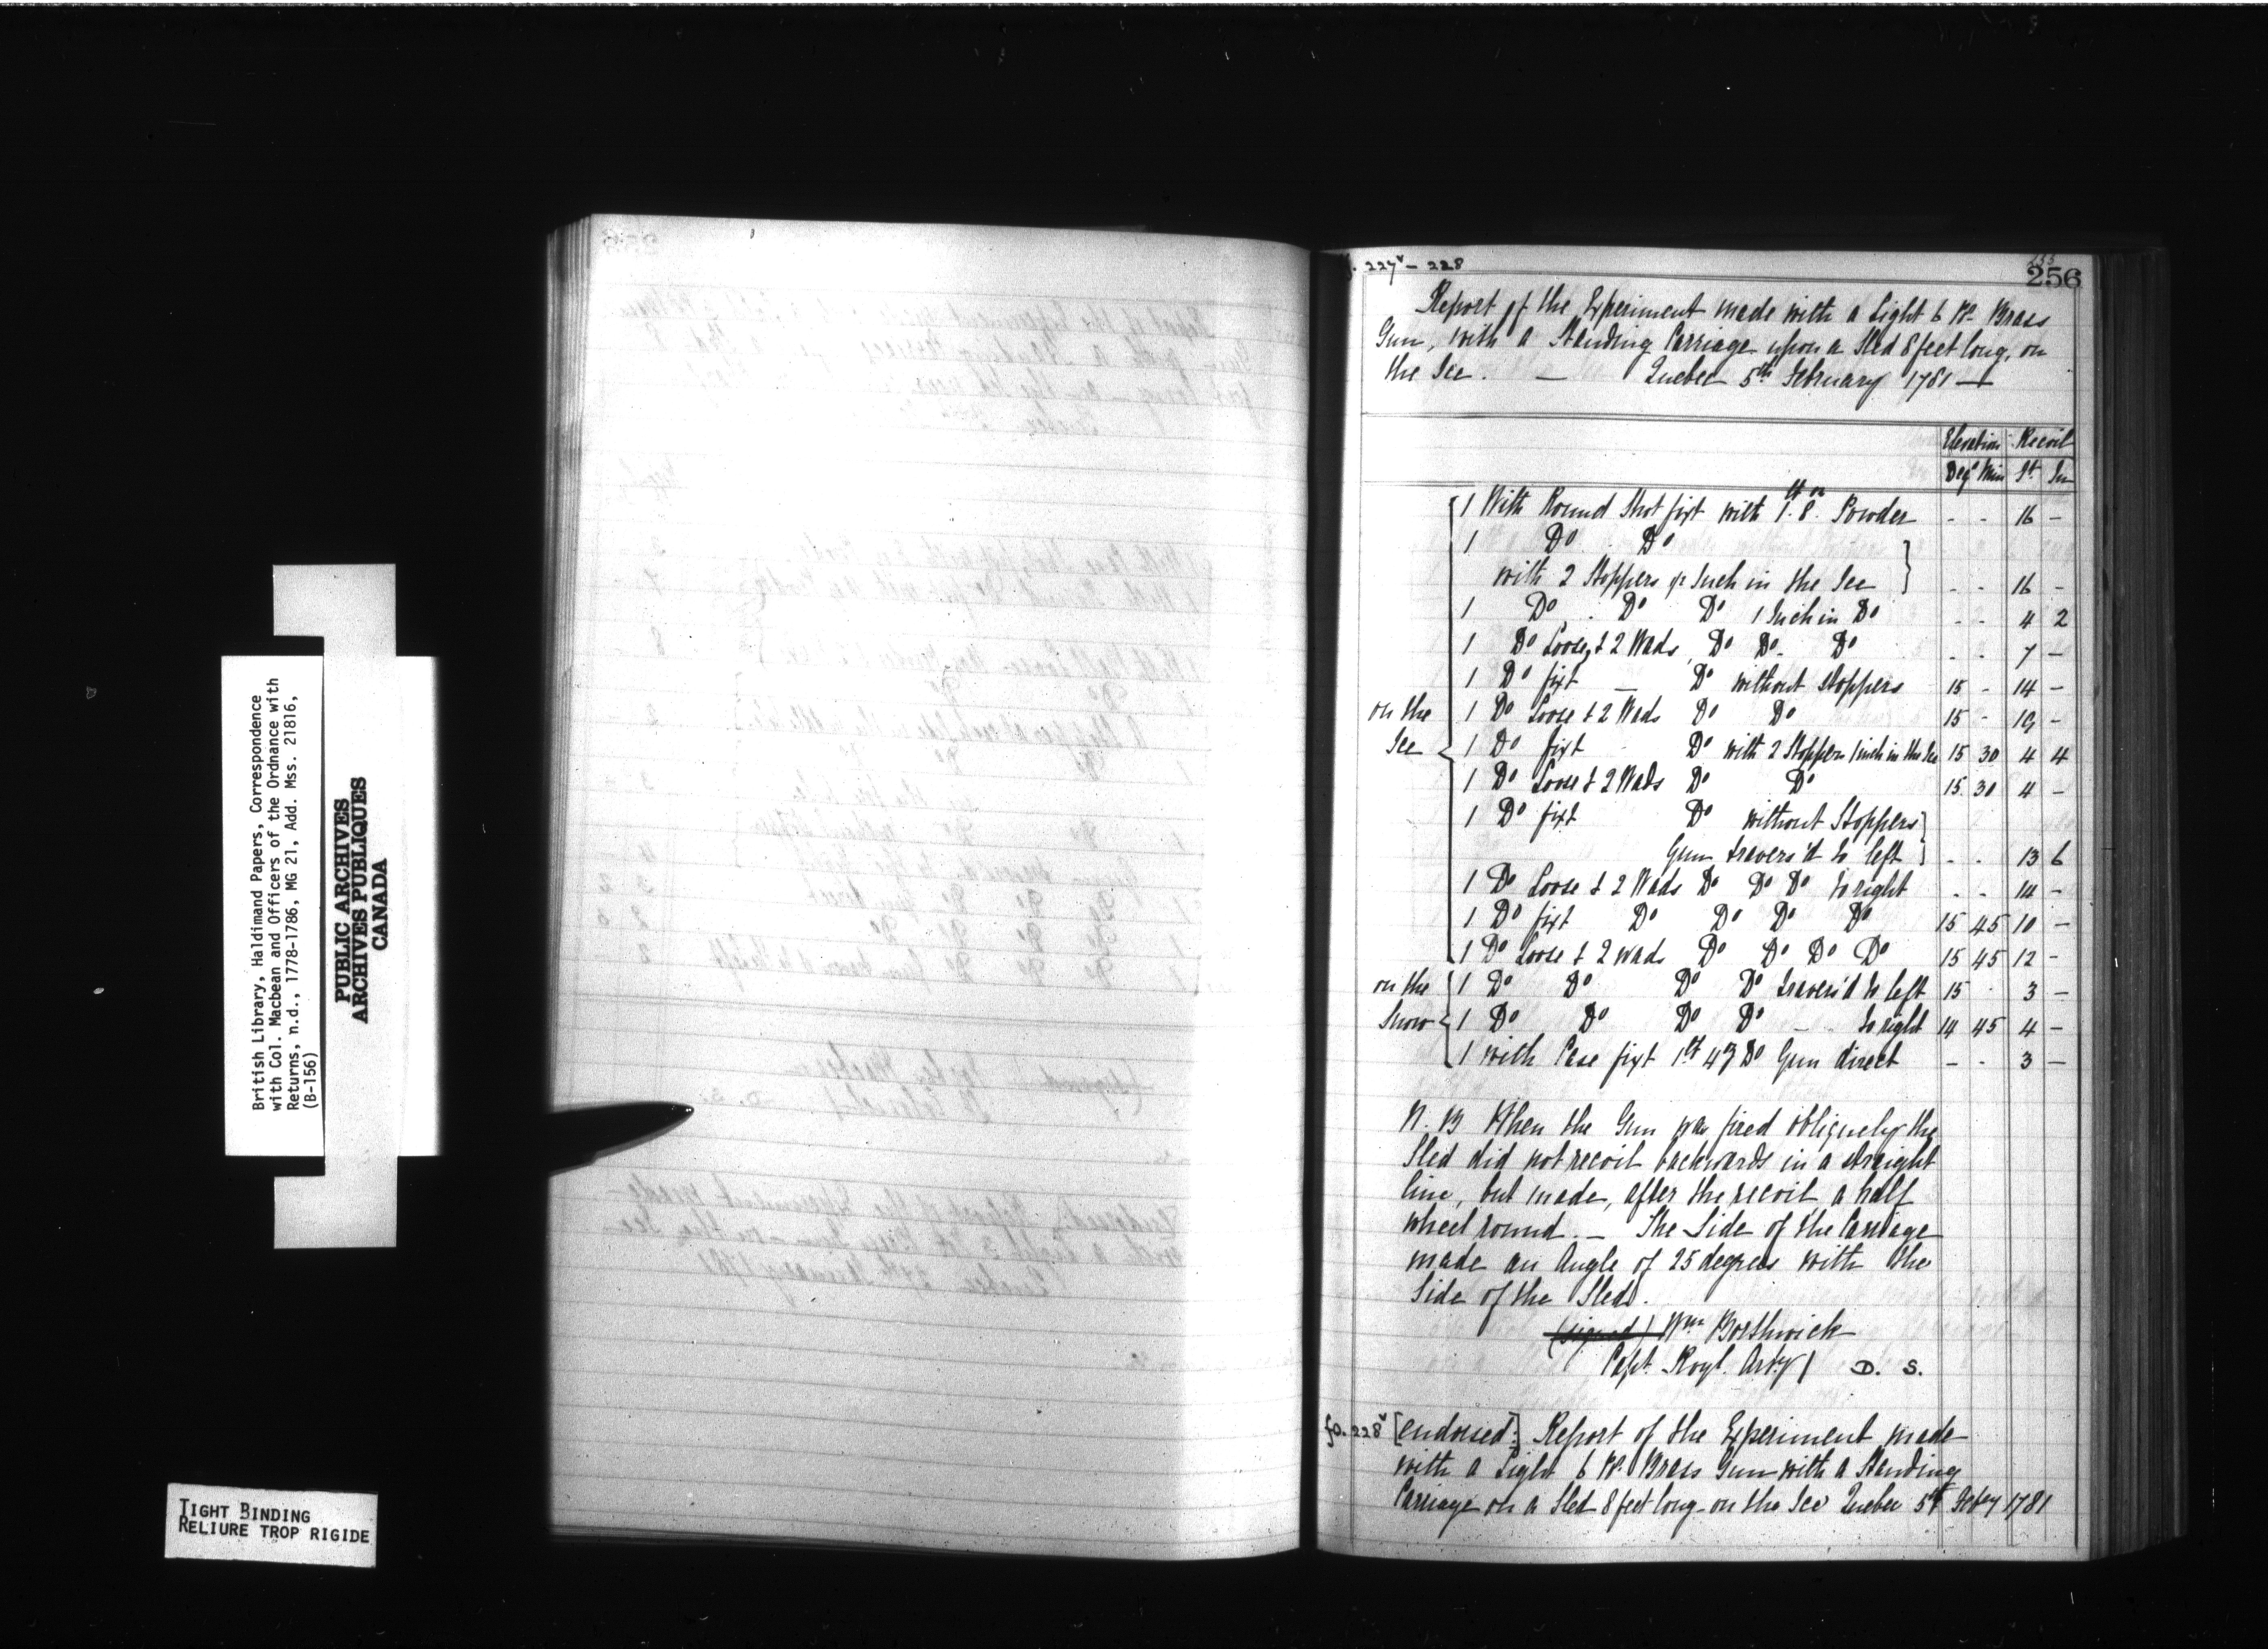 British Library, Haldimand Papers, Correspondence
with Col. Macbean and Officers of the Ordnance with
Returns, n.d., 1778-1786, MG 21, Add. Mss. 21816,
(B-156)
PUBLIC ARCHIVES
ARCHIVES PUBLIQUES
CANADA
TIGHT BINDING
RELIURE TROP RIGIDE
227v - 228
255
256
Report of the Experiment made with a Light 6 Pr Brass
Gun, with a Standing Carriage upon a Sled 8 feet long, on
the Ice. — Quebec 5th February 1781 —
Elevation Recoil
Degs Min Ft. In
1 With Round Shot fixt with 1 lb 8 oz Powder - - 16 -
1 Do Do
with 2 Stoppers Inch in the Ice - - 16 -
1 Do Do Do 1 Inch in Do - - 4 2
1 Do Loose & 2 Wads Do Do Do - - 7 -
1 Do fixt — Do without Stoppers 15 - 14 -
on the 1 Do Loose & 2 Wads Do Do 15 - 19 -
Ice 1 Do fixt Do with 2 Stoppers 1 inch in the Ice 15 30 4 4
1 Do Loose & 2 Wads Do Do 15 30 4 -
1 Do fixt Do without Stoppers
Gun travers'd to left - - 13 6
1 Do Loose & 2 Wads Do Do Do to right - - 14 -
1 Do fixt Do Do Do Do 15 45 10 -
1 Do Loose & 2 wads Do Do Do Do 15 45 12 -
on the 1 Do Do Do Do travers'd to left 15 - 3 -
Snow 1 Do Do Do Do - to right 14 45 4 -
1 with Case fixt 1 lb 4 oz Do Gun direct - - 3 -
N. B When the Gun was fired obliquely the
Sled did not recoil backwards in a straight
line, but made, after the recoil a half
wheel round. — The Side of the Carriage
made an Angle of 25 degrees with the
Side of the Sled.
(signed) Wm Borthwick
Capt. Royl. Arty D. S.
fo. 228v [endorsed:] Report of the Experiment made
with a Light 6 Pr. Brass Gun with a Standing
Carriage on a Sled 8 feet long on the Ice Quebec 5th Febry 1781